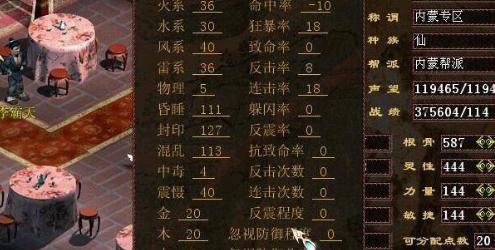 火系 36 命中率 -10
水系 30 狂暴率 18
风系 40 致命率 0
雷系 36 反击率 8
物理 5 连击率 18
昏睡 111 躲闪率 0
封印 127 反震率 0
混乱 113 抗致命率 0
中毒 4 反击次数 0
震慑 40 连击次数 0
金 20 反震程度 0
木 20 忽视防御程度 0
李霸天
称谓 内蒙专区
种族 仙
帮派 内蒙帮派
声望 119465/1194
战绩 375604/114
根骨 587
灵性 444
力量 144
敏捷 144
可分配点数 20